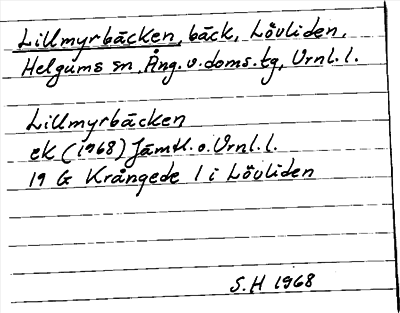 Lillmyrbäcken, bäck, Lövliden,
Helgums sn, Ång. v. doms.tg, Vrnl. l.
Lillmyrbäcken
ek (1968) Jämtl. o. Vrnl. l.
19 G Krångede 1 i Lövliden
S.H 1968